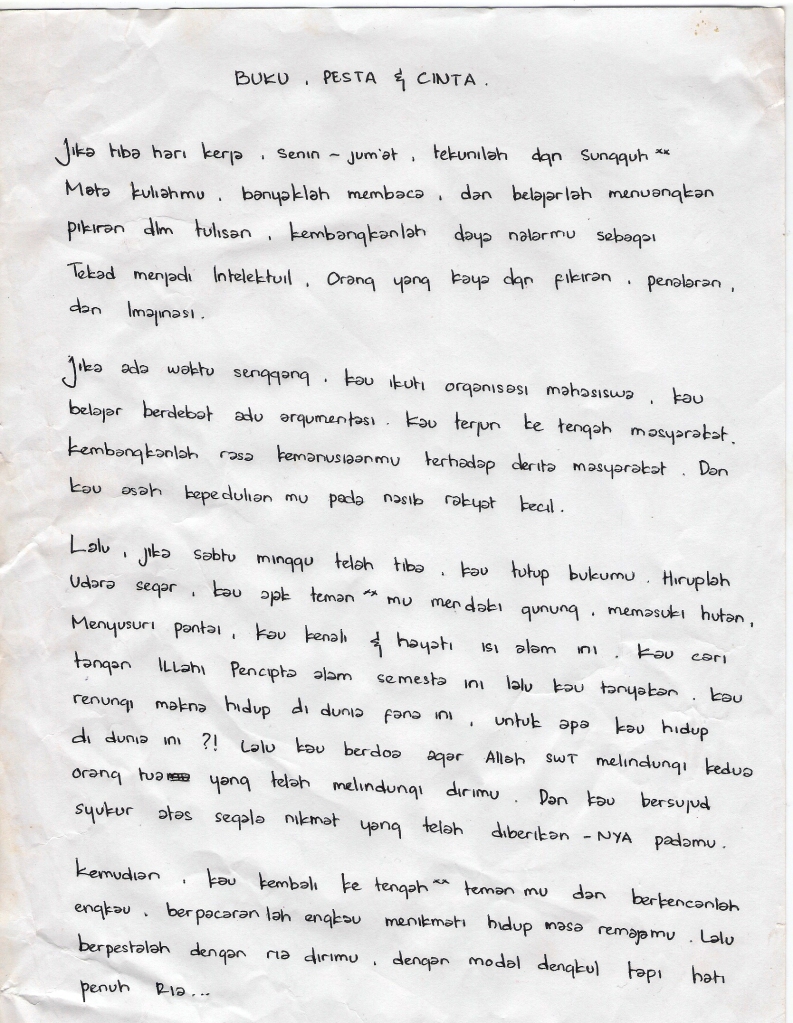 BUKU, PESTA & CINTA.
Jika tiba hari kerja, senin ~ jum'at, tekunilah dgn sungguh **
Mata kuliahmu, banyaklah membaca, dan belajarlah menuangkan
pikiran dlm tulisan, kembangkanlah daya nalarmu sebagai
Tekad menjadi Intelektuil, Orang yang kaya dgn fikiran, penalaran,
dan Imajinasi.
Jika ada waktu senggang, kau ikuti organisasi mahasiswa, kau
belajar berdebat adu argumentasi. Kau terjun ke tengah masyarakat.
kembangkanlah rasa kemanusiaanmu terhadap derita masyarakat. Dan
kau asah kepedulian mu pada nasib rakyat kecil.
Lalu, jika sabtu minggu telah tiba, kau tutup bukumu. Hiruplah
Udara segar, kau ajak teman ** mu mendaki gunung, memasuki hutan,
Menyusuri pantai, kau kenali & hayati isi alam ini. Kau cari
tangan ILLahi Pencipta alam semesta ini lalu kau tanyakan. kau
renungi makna hidup di dunia fana ini, untuk apa kau hidup
di dunia ini ?! Lalu kau berdoa agar Allah SWT melindungi kedua
orang tua yang telah melindungi dirimu. Dan kau bersujud
syukur atas segala nikmat yang telah diberikan -NYA padamu.
kemudian, kau kembali ke tengah ** teman mu dan berkencanlah
engkau, berpacaran lah engkau menikmati hidup masa remajamu. Lalu
berpestalah dengan ria dirimu, dengan modal dengkul tapi hati
penuh Ria...